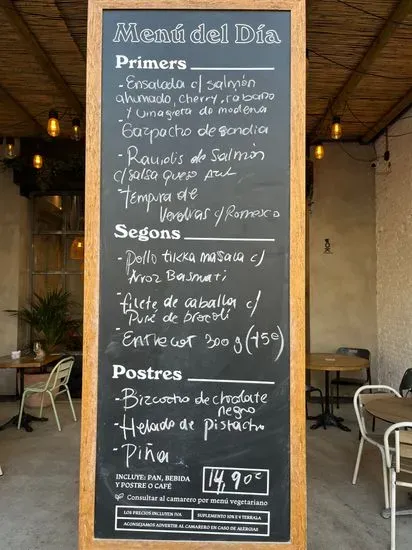 Menú del Día
Primers
- Ensalada c/ salmón
ahumado, cherry, rábano
y vinagreta de modena
- Gazpacho de sandia
- Raviolis de Salmón
c/ salsa queso azul
- Tempura de
Verduras c/ Romesco
Segons
- Pollo tikka masala c/
Arroz Basmati
- filete de caballa c/
Puré de brocoli
- Entrecot 300 g (+5€)
Postres
- Bizcocho de chocolate
negro
- Helado de pistacho
- Piña
INCLUYE: PAN, BEBIDA
Y POSTRE O CAFÉ
14,90€
Consultar al camarero por menú vegetariano
LOS PRECIOS INCLUYEN IVA
SUPLEMENTO 10% E N TERRALA
ACONSEJAMOS ADVERTIR AL CAMARERO EN CASO DE ALERGIAS